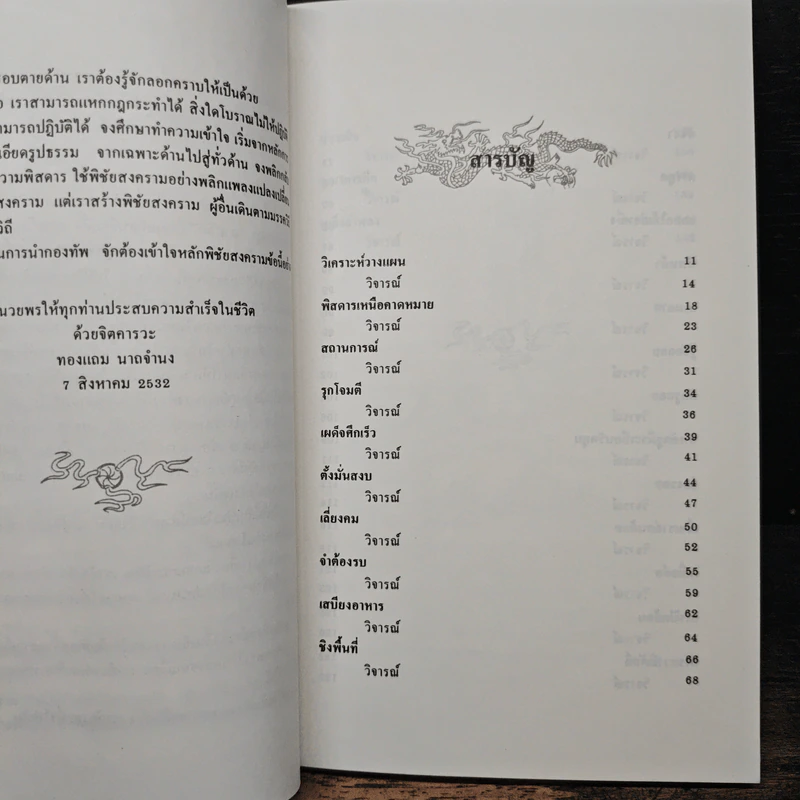 อบตายด้าน เราต้องรู้จักลอกคราบให้เป็นด้วย
เราสามารถแหกกฎกระทำได้ สิ่งใดโบราณไม่ให้ปฏิบัติ
มารถปฏิบัติได้ จงศึกษาทำความเข้าใจ เริ่มจากหลักการ
เอียดรูปธรรม จากเฉพาะด้านไปสู่ทั่วด้าน จงพลิกกลับ
วามพิสดาร ใช้พิชัยสงครามอย่างพลิกแพลงแปลงเปลี่ยน
สงคราม แต่เราสร้างพิชัยสงคราม ผู้อื่นเดินตามมรรควิ
วิถี
นการนำกองทัพ จักต้องเข้าใจหลักพิชัยสงครามข้อนี้อย่าง
นวยพรให้ทุกท่านประสบความสำเร็จในชีวิต
ด้วยจิตคารวะ
ทองแถม นาถจำนง
7 สิงหาคม 2532
สารบัญ
วิเคราะห์วางแผน 11
วิจารณ์ 14
พิสดารเหนือคาดหมาย 18
วิจารณ์ 23
สถานการณ์ 26
วิจารณ์ 31
รุกโจมตี 34
วิจารณ์ 36
เผด็จศึกเร็ว 39
วิจารณ์ 41
ตั้งมั่นสงบ 44
วิจารณ์ 47
เลี่ยงคม 50
วิจารณ์ 52
จำต้องรบ 55
วิจารณ์ 59
เสบียงอาหาร 62
วิจารณ์ 64
ชิงพื้นที่ 66
วิจารณ์ 68